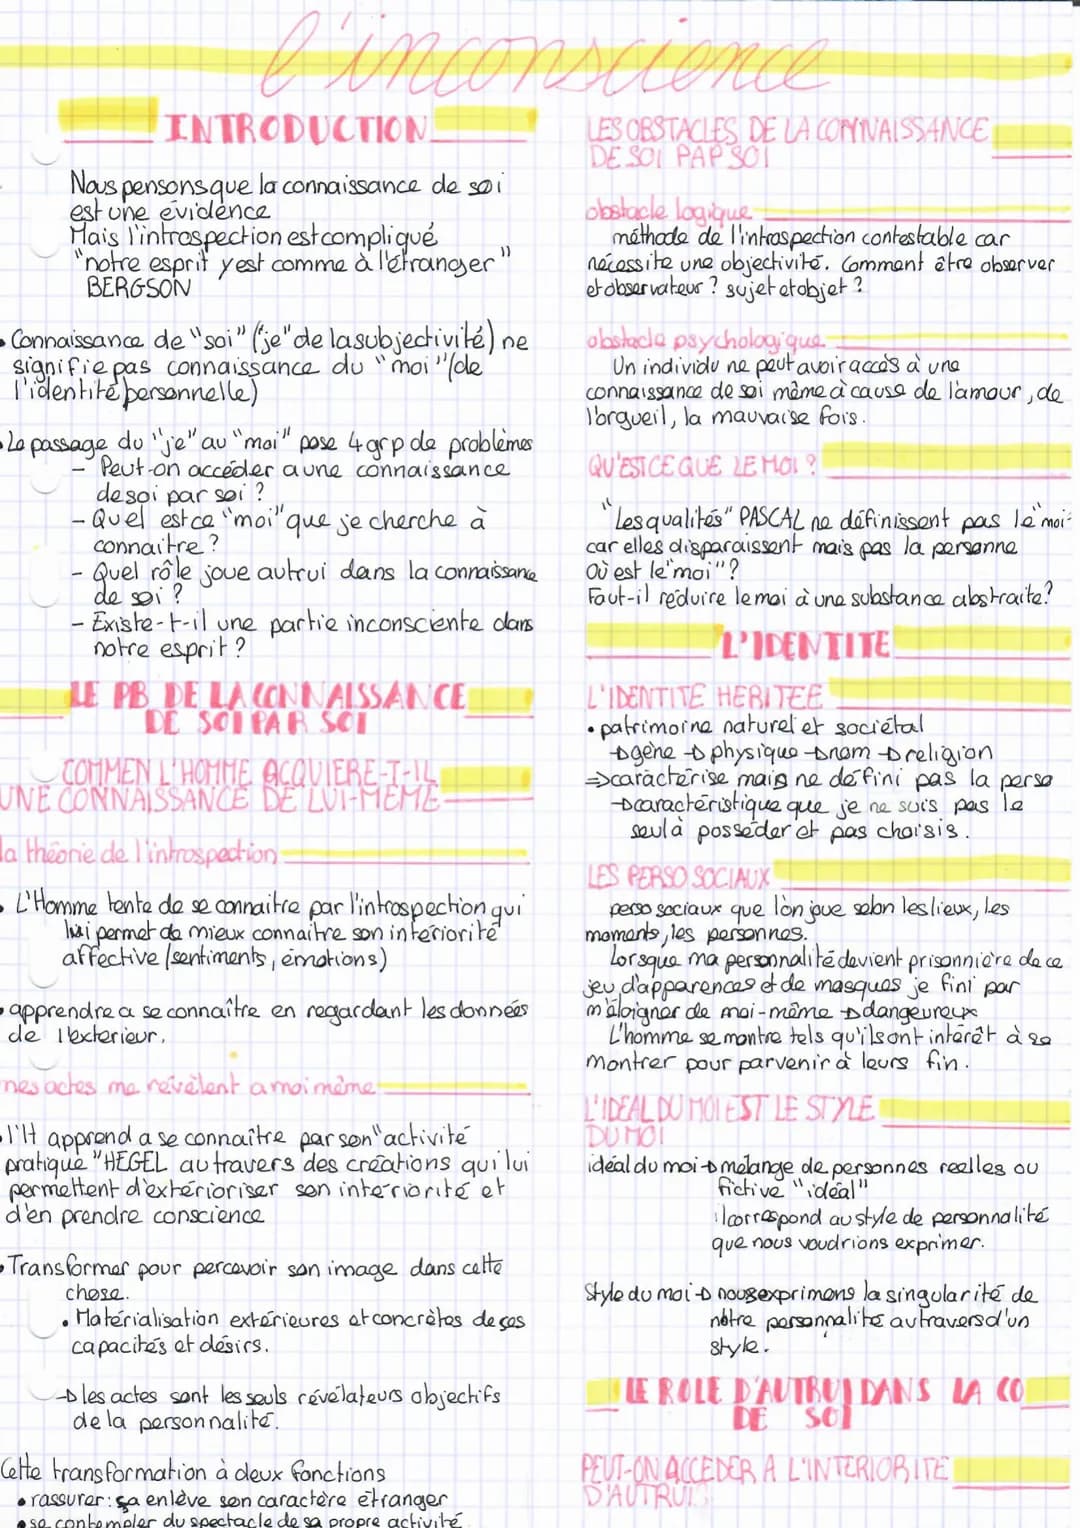 l'inconscience
INTRODUCTION
Nous pensons que la connaissance de soi
est une évidence
Mais l'introspection est compliqué
"notre esprit y est comme à l'étranger"
BERGSON
• Connaissance de "soi" ("je" de la subjectivité) ne
signifie pas connaissance du "moi" (de
l'identité personnelle)
• Le passage du "je" au "moi" pose 4 grp de problèmes
- Peut-on accéder a une connaissance
de soi par soi ?
- Quel est ce "moi" que je cherche à
connaitre ?
- Quel rôle joue autrui dans la connaissance
de soi ?
- Existe-t-il une partie inconsciente dans
notre esprit ?
LE PB DE LA CONNAISSANCE
DE SOI PAR SOI
COMMEN L'HOMME ACQUIERE-T-IL
UNE CONNAISSANCE DE LUI-MEME
la théorie de l'introspection
• L'Homme tente de se connaitre par l'introspection qui
lui permet de mieux connaitre son intériorité
affective (sentiments, émotions)
• apprendre a se connaître en regardant les données
de l'exterieur.
mes actes me révèlent a moi même
• l'H apprend a se connaître par son "activité
pratique" HEGEL au travers des créations qui lui
permettent d'extérioriser son interiorité et
d'en prendre conscience
• Transformer pour percevoir son image dans cette
chose.
• Matérialisation extérieures et concrètes de ses
capacités et désirs.
→ les actes sont les seuls révélateurs objectifs
de la personnalité.
Cette transformation à deux fonctions
• rassurer : ça enlève son caractère étranger
• se contempler du spectacle de sa propre activité
LES OBSTACLES DE LA CONNAISSANCE
DE SOI PAR SOI
obstacle logique
méthode de l'introspection contestable car
nécessite une objectivité. Comment être observer
et observateur ? sujet et objet ?
obstacle psychologique
Un individu ne peut avoir accès à une
connaissance de soi même à cause de l'amour, de
l'orgueil, la mauvaise fois.
QU'EST CE QUE LE MOI ?
"Les qualités" PASCAL ne définissent pas le "moi"
car elles disparaissent mais pas la personne
Où est le "moi" ?
Faut-il réduire le moi à une substance abstraite?
L'IDENTITE
L'IDENTITE HERITEE
• patrimoine naturel et sociétal
→ gène → physique → nom → religion
⇒ caractérise mais ne défini pas la perso
→ caractéristique que je ne suis pas le
seul à posséder et pas choisis.
LES PERSO SOCIAUX
perso sociaux que l'on joue selon les lieux, les
moments, les personnes.
Lorsque ma personnalité devient prisonnière de ce
jeu d'apparences et de masques je fini par
m'éloigner de moi-même → dangeureux
L'homme se montre tels qu'ils ont intérêt à se
montrer pour parvenir à leurs fin.
L'IDEAL DU MOI EST LE STYLE
DU MOI
idéal du moi → mélange de personnes reelles ou
fictive "idéal"
il correspond au style de personnalité
que nous voudrions exprimer.
Style du moi → nous exprimons la singularité de
nôtre personnalité au travers d'un
style.
LE ROLE D'AUTRUI DANS LA CO
DE SOI
PEUT-ON ACCEDER A L'INTERIORITE
D'AUTRUI ?